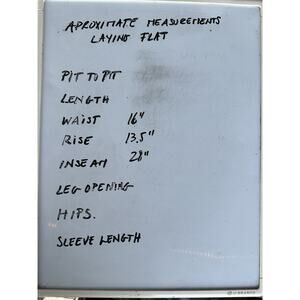 APROXIMATE MEASUREMENTS
LAYING FLAT
PIT TO PIT
LENGTH
WAIST 16"
RISE 13.5"
INSEAM 28"
LEG OPENING
HIPS.
SLEEVE LENGTH